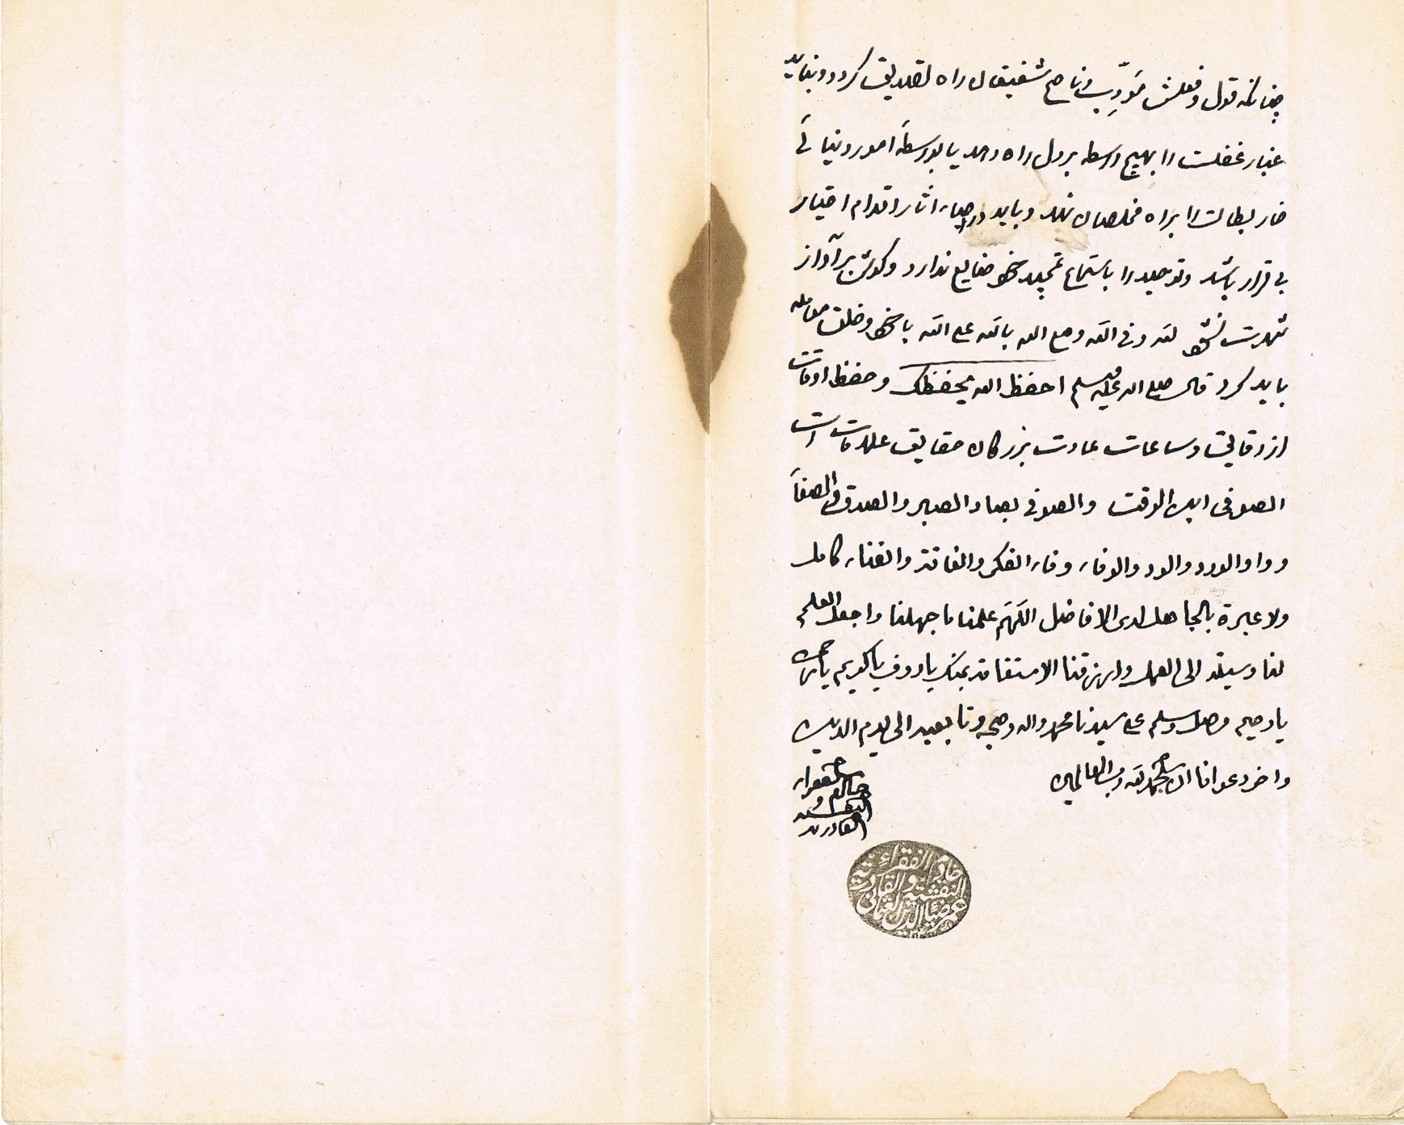 چنانکه قول و فعلش مؤدِّب و ناصح شفیقان راه تصدیق کردد و نباید
غبار غفلت را بهیچ واسطه بر دل راه دهد یا بواسطهٔ امور دنیائی
خار بطالت را براه مخلصان نهد و باید در احیاء اثار اقدام اختیار
بی قرار باشد و توحید را باستماع تمجید خود ضایع ندارد و کوش بر آواز
شهرت نشود لله و فی الله و مع الله بالله علی الله با خود و خلق معامله
باید کرد قال صلی الله علیه وسلم احفظ الله یحفظک و حفظ اوقات
از دقایق و ساعات عادت بزرکان حقایق علامات است
الصوفی ابن الوقت والصوفی بصاد الصبر والصدق والصفآ
و واو الورد والود والوفاء وفاء الفکر والفاقة والفناء کامل
ولا عبرة بالجاهل لدی الافاضل اللهم علمنا ما جهلنا واجعل العلم
لنا وسیلة الی العمل وارزقنا الاستقامة بمنک یا روف یا کریم یا رحمن
یا رحیم وصل وسلم علی سیدنا محمد واله وصحبه وتابعیه الی یوم الدین
واخر دعوانا ان الحمد لله رب العالمین
خادم الفقراء
النقشبندیة و
القادریة
خادم الفقراء
النقشبندیة والقادریة
عمر ضیاء الدین العثمانی